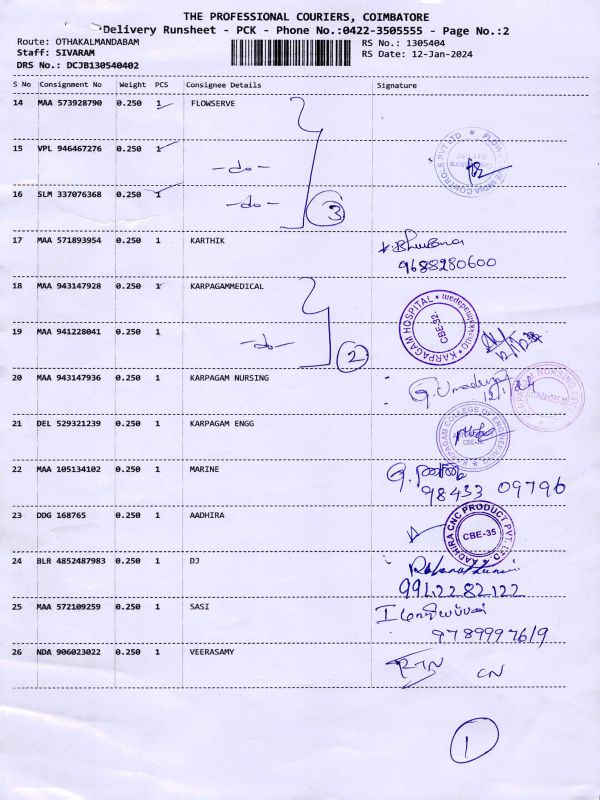 THE PROFESSIONAL COURIERS, COIMBATORE
Delivery Runsheet - PCK - Phone No.:0422-3505555 - Page No.:2
Route: OTHAKALMANDABAM
Staff: SIVARAM
DRS No.: DCJB130540402
RS No.: 1305404
RS Date: 12-Jan-2024
S No Consignment No Weight PCS Consignee Details Signature
14 MAA 573928790 0.250 1 FLOWSERVE
15 VPL 946467276 0.250 1 -do-
16 SLM 337076368 0.250 1 -do- 3
17 MAA 571893954 0.250 1 KARTHIK
9688280600
18 MAA 943147928 0.250 1 KARPAGAMMEDICAL
KARPAGAM HOSPITAL
CBE-32.
19 MAA 941228041 0.250 1 -do- 2
20 MAA 943147936 0.250 1 KARPAGAM NURSING
12/1/24
21 DEL 529321239 0.250 1 KARPAGAM ENGG
KARPAGAM COLLEGE OF ENGINEERING
22 MAA 105134102 0.250 1 MARINE
98433 09796
23 DDG 168765 0.250 1 AADHIRA
AADHIRA CNC PRODUCT PVT. LTD.
CBE-35
24 BLR 4852487983 0.250 1 DJ
9942282122
25 MAA 572109259 0.250 1 SASI
9789997619
26 NDA 906023022 0.250 1 VEERASAMY
RTN CN
1